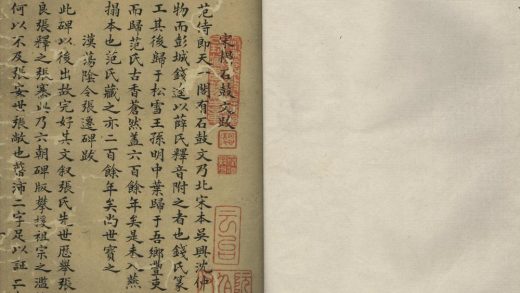 宋搨石鼓文跋
范侍郎天一閣有石鼓文乃北宋本吳興沈仲
物而彭城錢逵以薛氏釋音附之者也錢氏篆
王其後歸于松雪王孫明中葉歸于吾鄉豐吏
而歸范氏古香蒼然蓋六百餘年矣是未入燕
搨本也范氏藏之亦二百餘年矣尚世寶之
漢蕩陰令張遷碑跋
此碑以後出故完好其文叙張氏先世歷舉張
良張釋之張騫此乃六朝碑版攀援祖宗之濫
何以不及張安世張敞也蔽沛二字足以証二